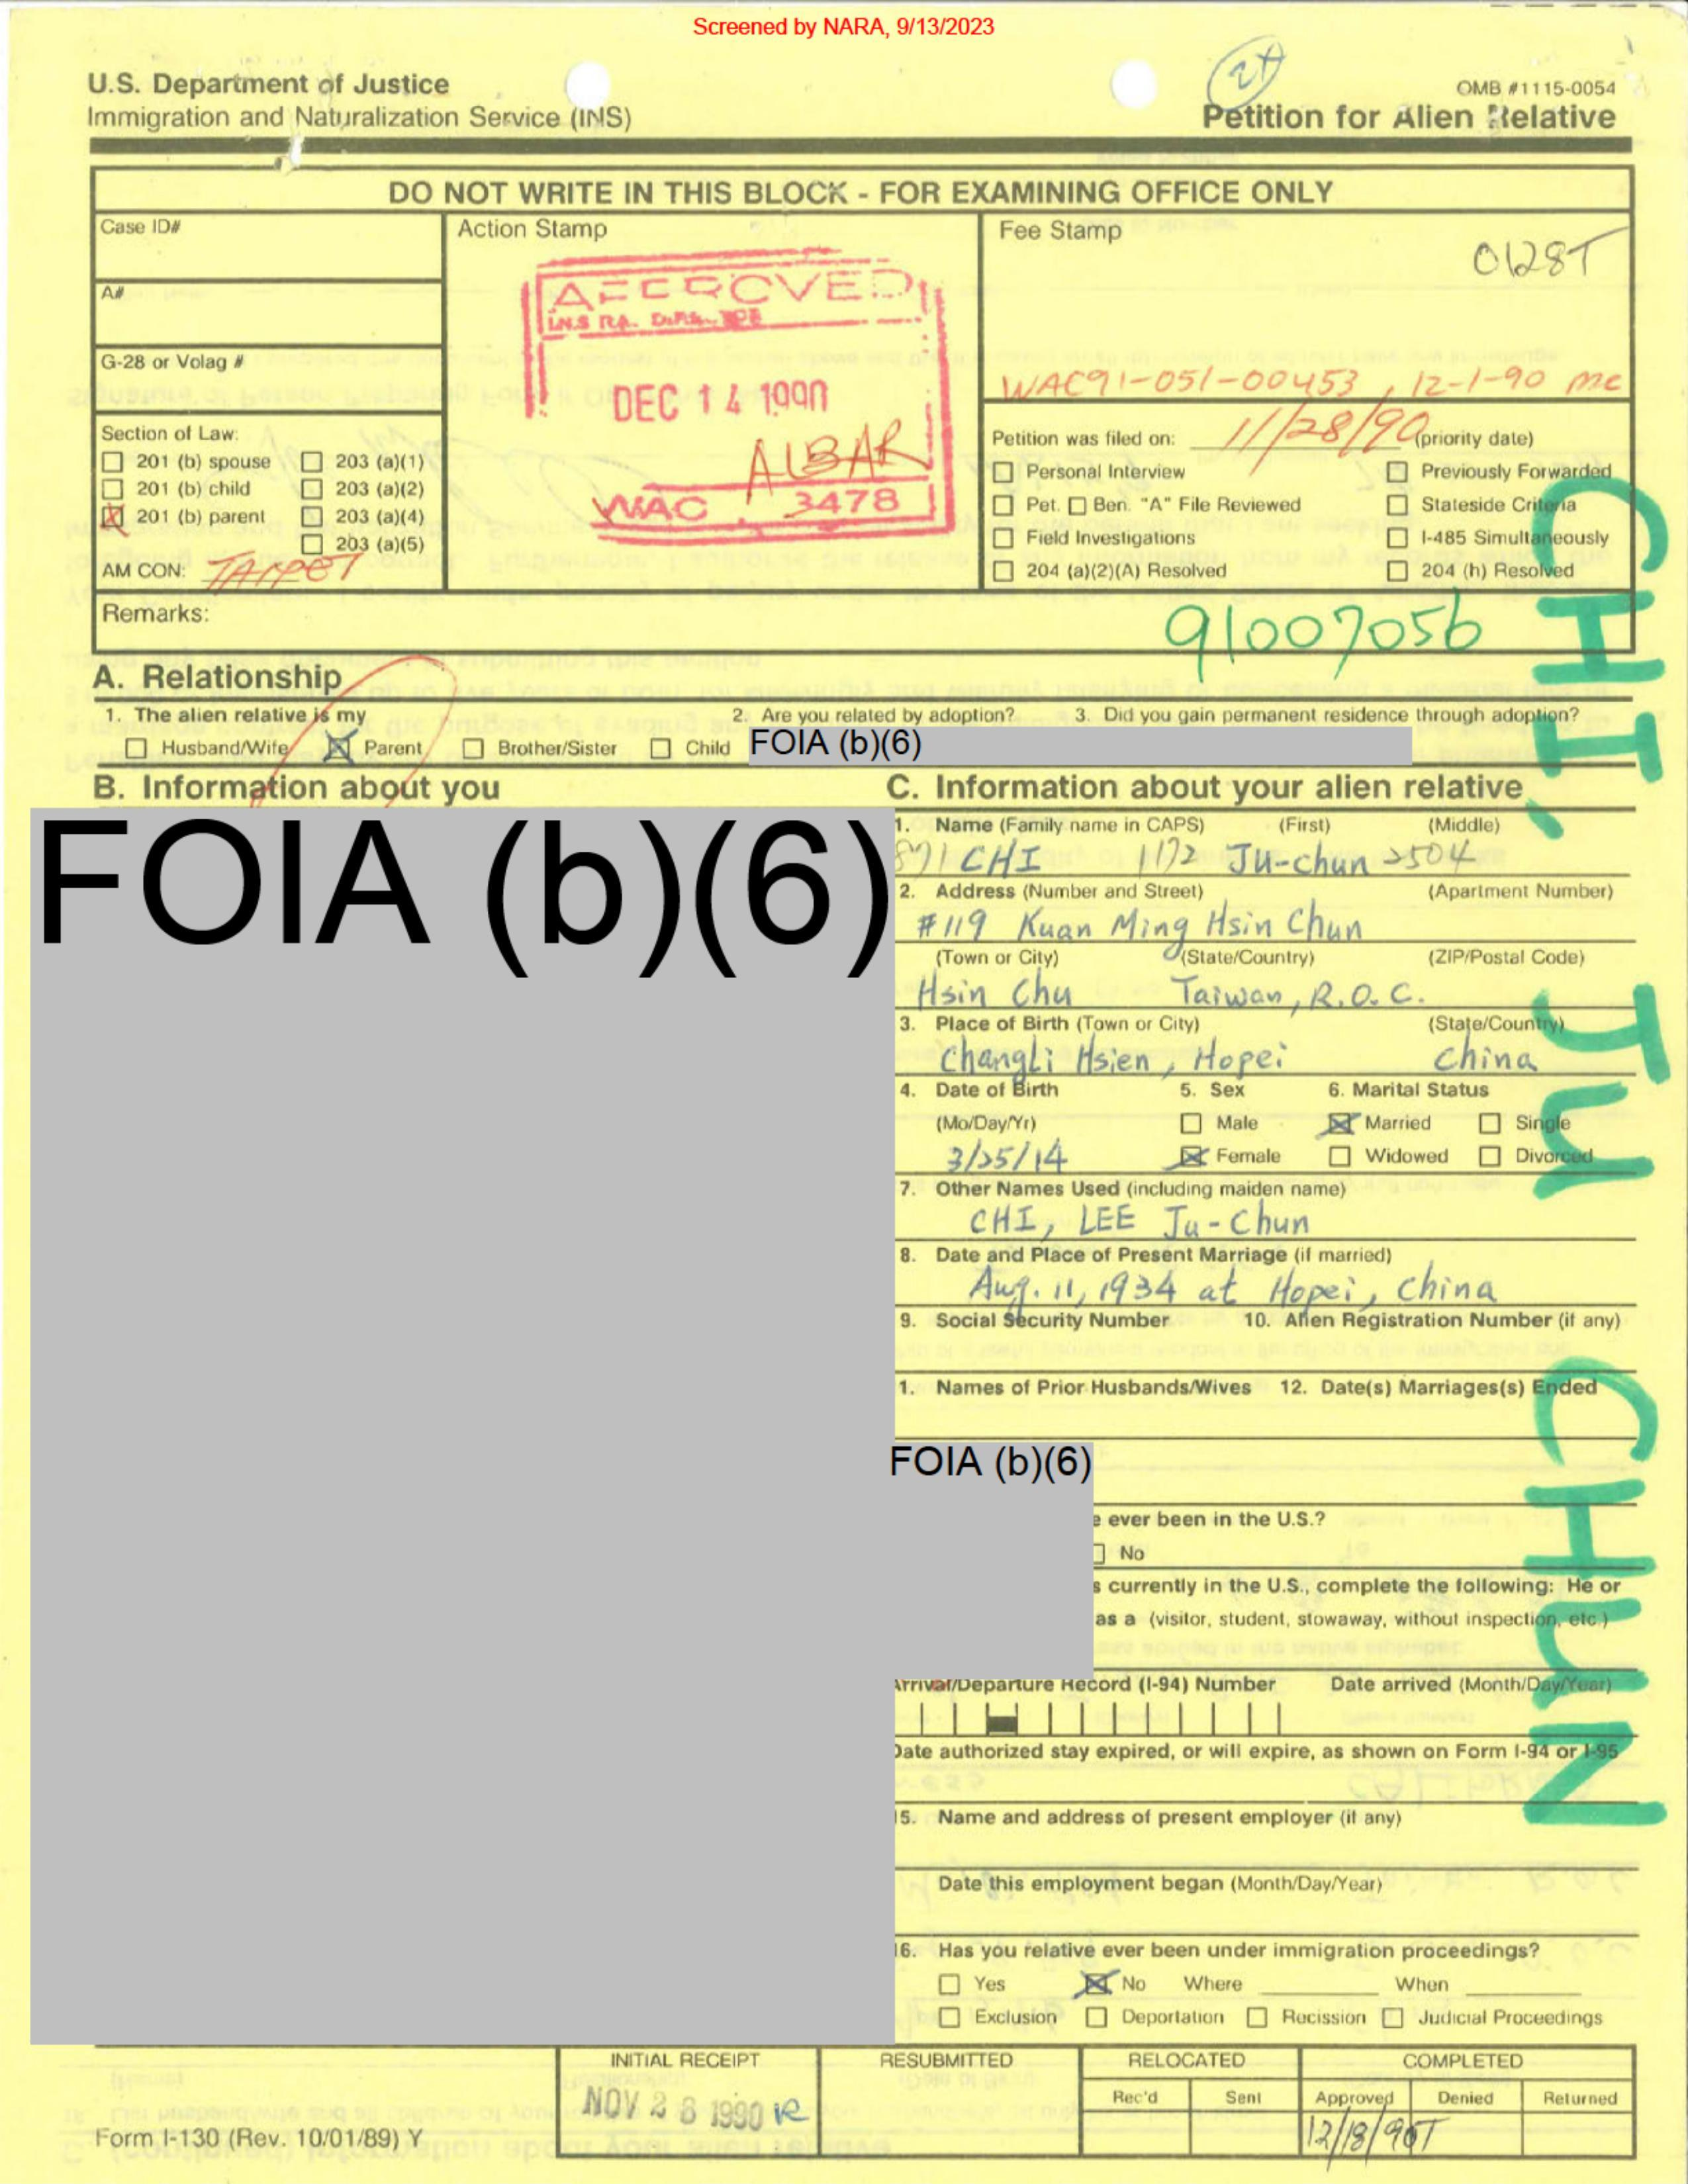 Screened by NARA, 9/13/2023
U.S. Department of Justice
Immigration and Naturalization Service (INS)
OMB #1115-0054
Petition for Alien Relative
DO NOT WRITE IN THIS BLOCK - FOR EXAMINING OFFICE ONLY
Case ID#
A#
G-28 or Volag #
Section of Law:
201 (b) spouse 203 (a)(1)
201 (b) child 203 (a)(2)
201 (b) parent 203 (a)(4)
203 (a)(5)
AM CON: TAIPEI
Action Stamp
APPROVED
DEC 14 1990
ALBAR
WAC 3478
Fee Stamp
0128T
WAC91-051-00453, 12-1-90 mc
Petition was filed on: 11/28/90 (priority date)
Personal Interview Previously Forwarded
Pet. Ben. "A" File Reviewed Stateside Criteria
Field Investigations I-485 Simultaneously
204 (a)(2)(A) Resolved 204 (h) Resolved
Remarks:
91007056
A. Relationship
1. The alien relative is my 2. Are you related by adoption? 3. Did you gain permanent residence through adoption?
Husband/Wife Parent Brother/Sister Child FOIA (b)(6)
B. Information about you
FOIA (b)(6)
C. Information about your alien relative
1. Name (Family name in CAPS) (First) (Middle)
871 CHI 1172 Ju-chun 2504
2. Address (Number and Street) (Apartment Number)
#119 Kuan Ming Hsin Chun
(Town or City) (State/Country) (ZIP/Postal Code)
Hsin Chu Taiwan, R.O.C.
3. Place of Birth (Town or City) (State/Country)
Changli Hsien, Hopei China
4. Date of Birth 5. Sex 6. Marital Status
(Mo/Day/Yr) Male Married Single
3/25/14 Female Widowed Divorced
7. Other Names Used (including maiden name)
CHI, LEE Ju-Chun
8. Date and Place of Present Marriage (if married)
Aug. 11, 1934 at Hopei, China
9. Social Security Number 10. Alien Registration Number (if any)
1. Names of Prior Husbands/Wives 12. Date(s) Marriages(s) Ended
FOIA (b)(6)
e ever been in the U.S.?
No
s currently in the U.S., complete the following: He or
as a (visitor, student, stowaway, without inspection, etc.)
Arrival/Departure Record (I-94) Number Date arrived (Month/Day/Year)
Date authorized stay expired, or will expire, as shown on Form I-94 or I-95
15. Name and address of present employer (if any)
Date this employment began (Month/Day/Year)
16. Has you relative ever been under immigration proceedings?
Yes No Where When
Exclusion Deportation Recission Judicial Proceedings
CHI, JU CHUN
INITIAL RECEIPT RESUBMITTED RELOCATED COMPLETED
Rec'd Sent Approved Denied Returned
NOV 28 1990
12/18/90T
Form I-130 (Rev. 10/01/89) Y